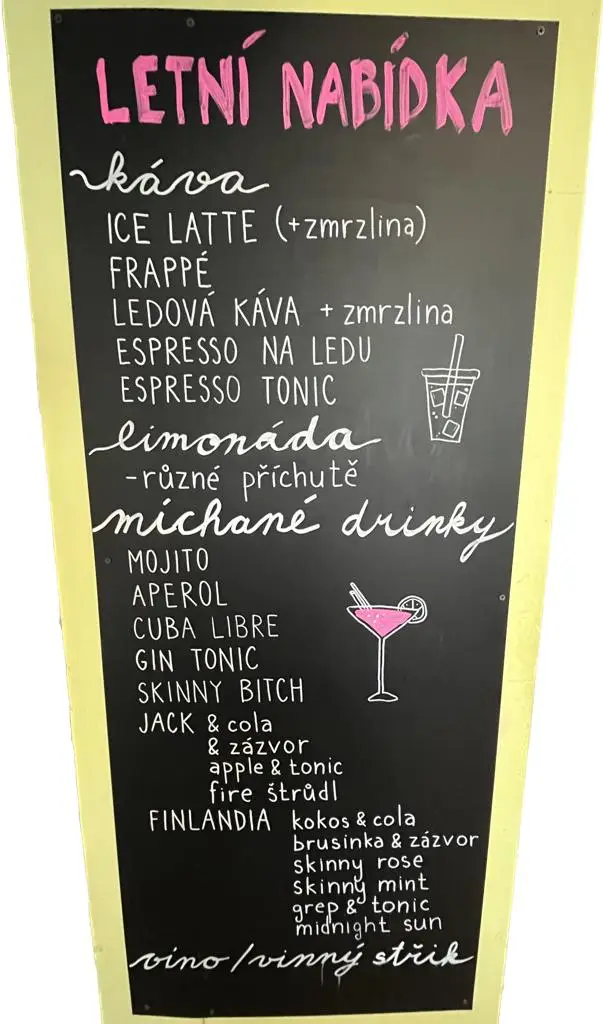 LETNÍ NABÍDKA
káva
ICE LATTE (+zmrzlina)
FRAPPÉ
LEDOVÁ KÁVA + zmrzlina
ESPRESSO NA LEDU
ESPRESSO TONIC
limonáda
-různé příchutě
míchané drinky
MOJITO
APEROL
CUBA LIBRE
GIN TONIC
SKINNY BITCH
JACK & cola
& zázvor
apple & tonic
fire štrůdl
FINLANDIA kokos & cola
brusinka & zázvor
skinny rose
skinny mint
grep & tonic
midnight sun
víno/vinný střik